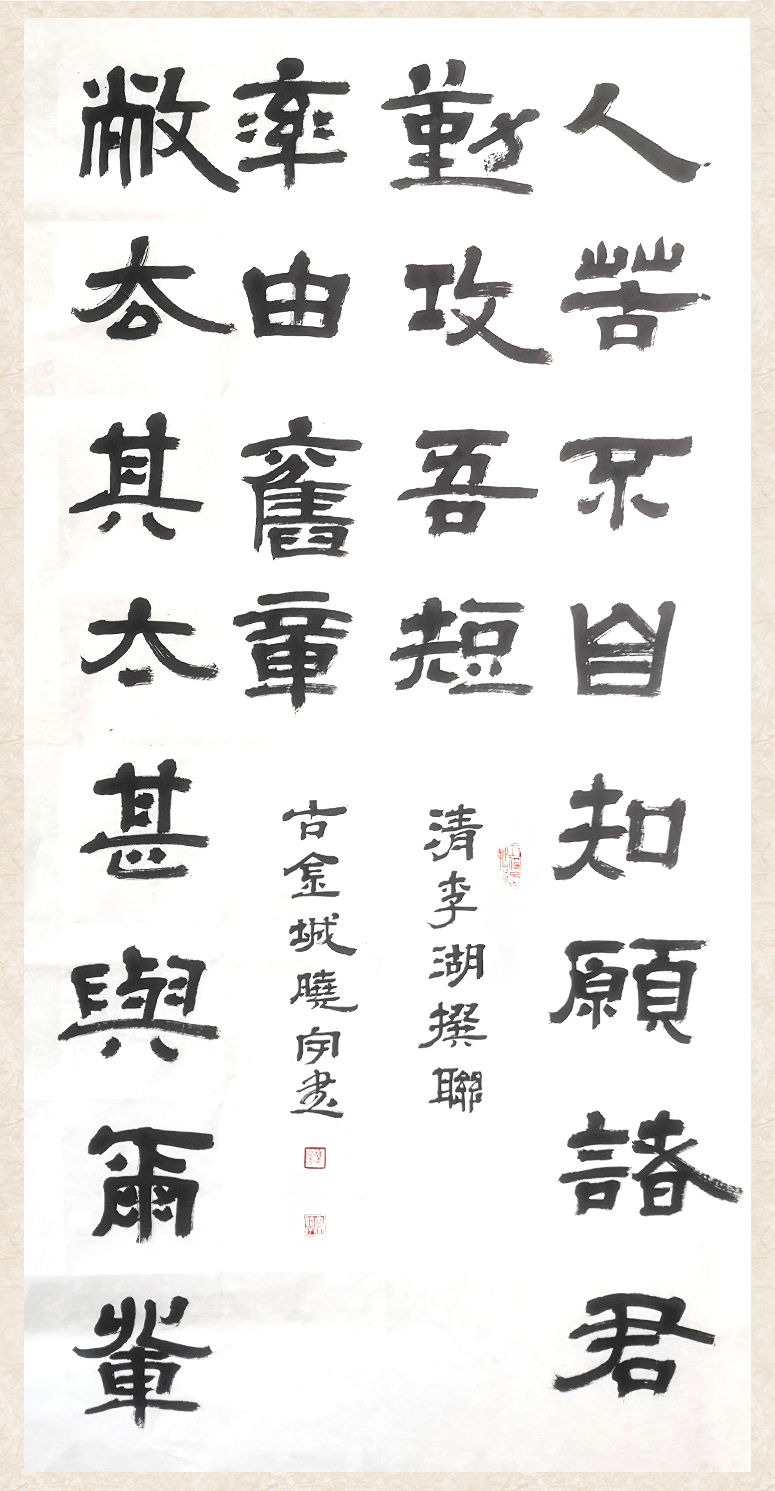 人苦不自知願諸君
勤攻吾短
清李湖撰聯
敝去其太甚與爾輩
率由舊章
古金城曉宇書